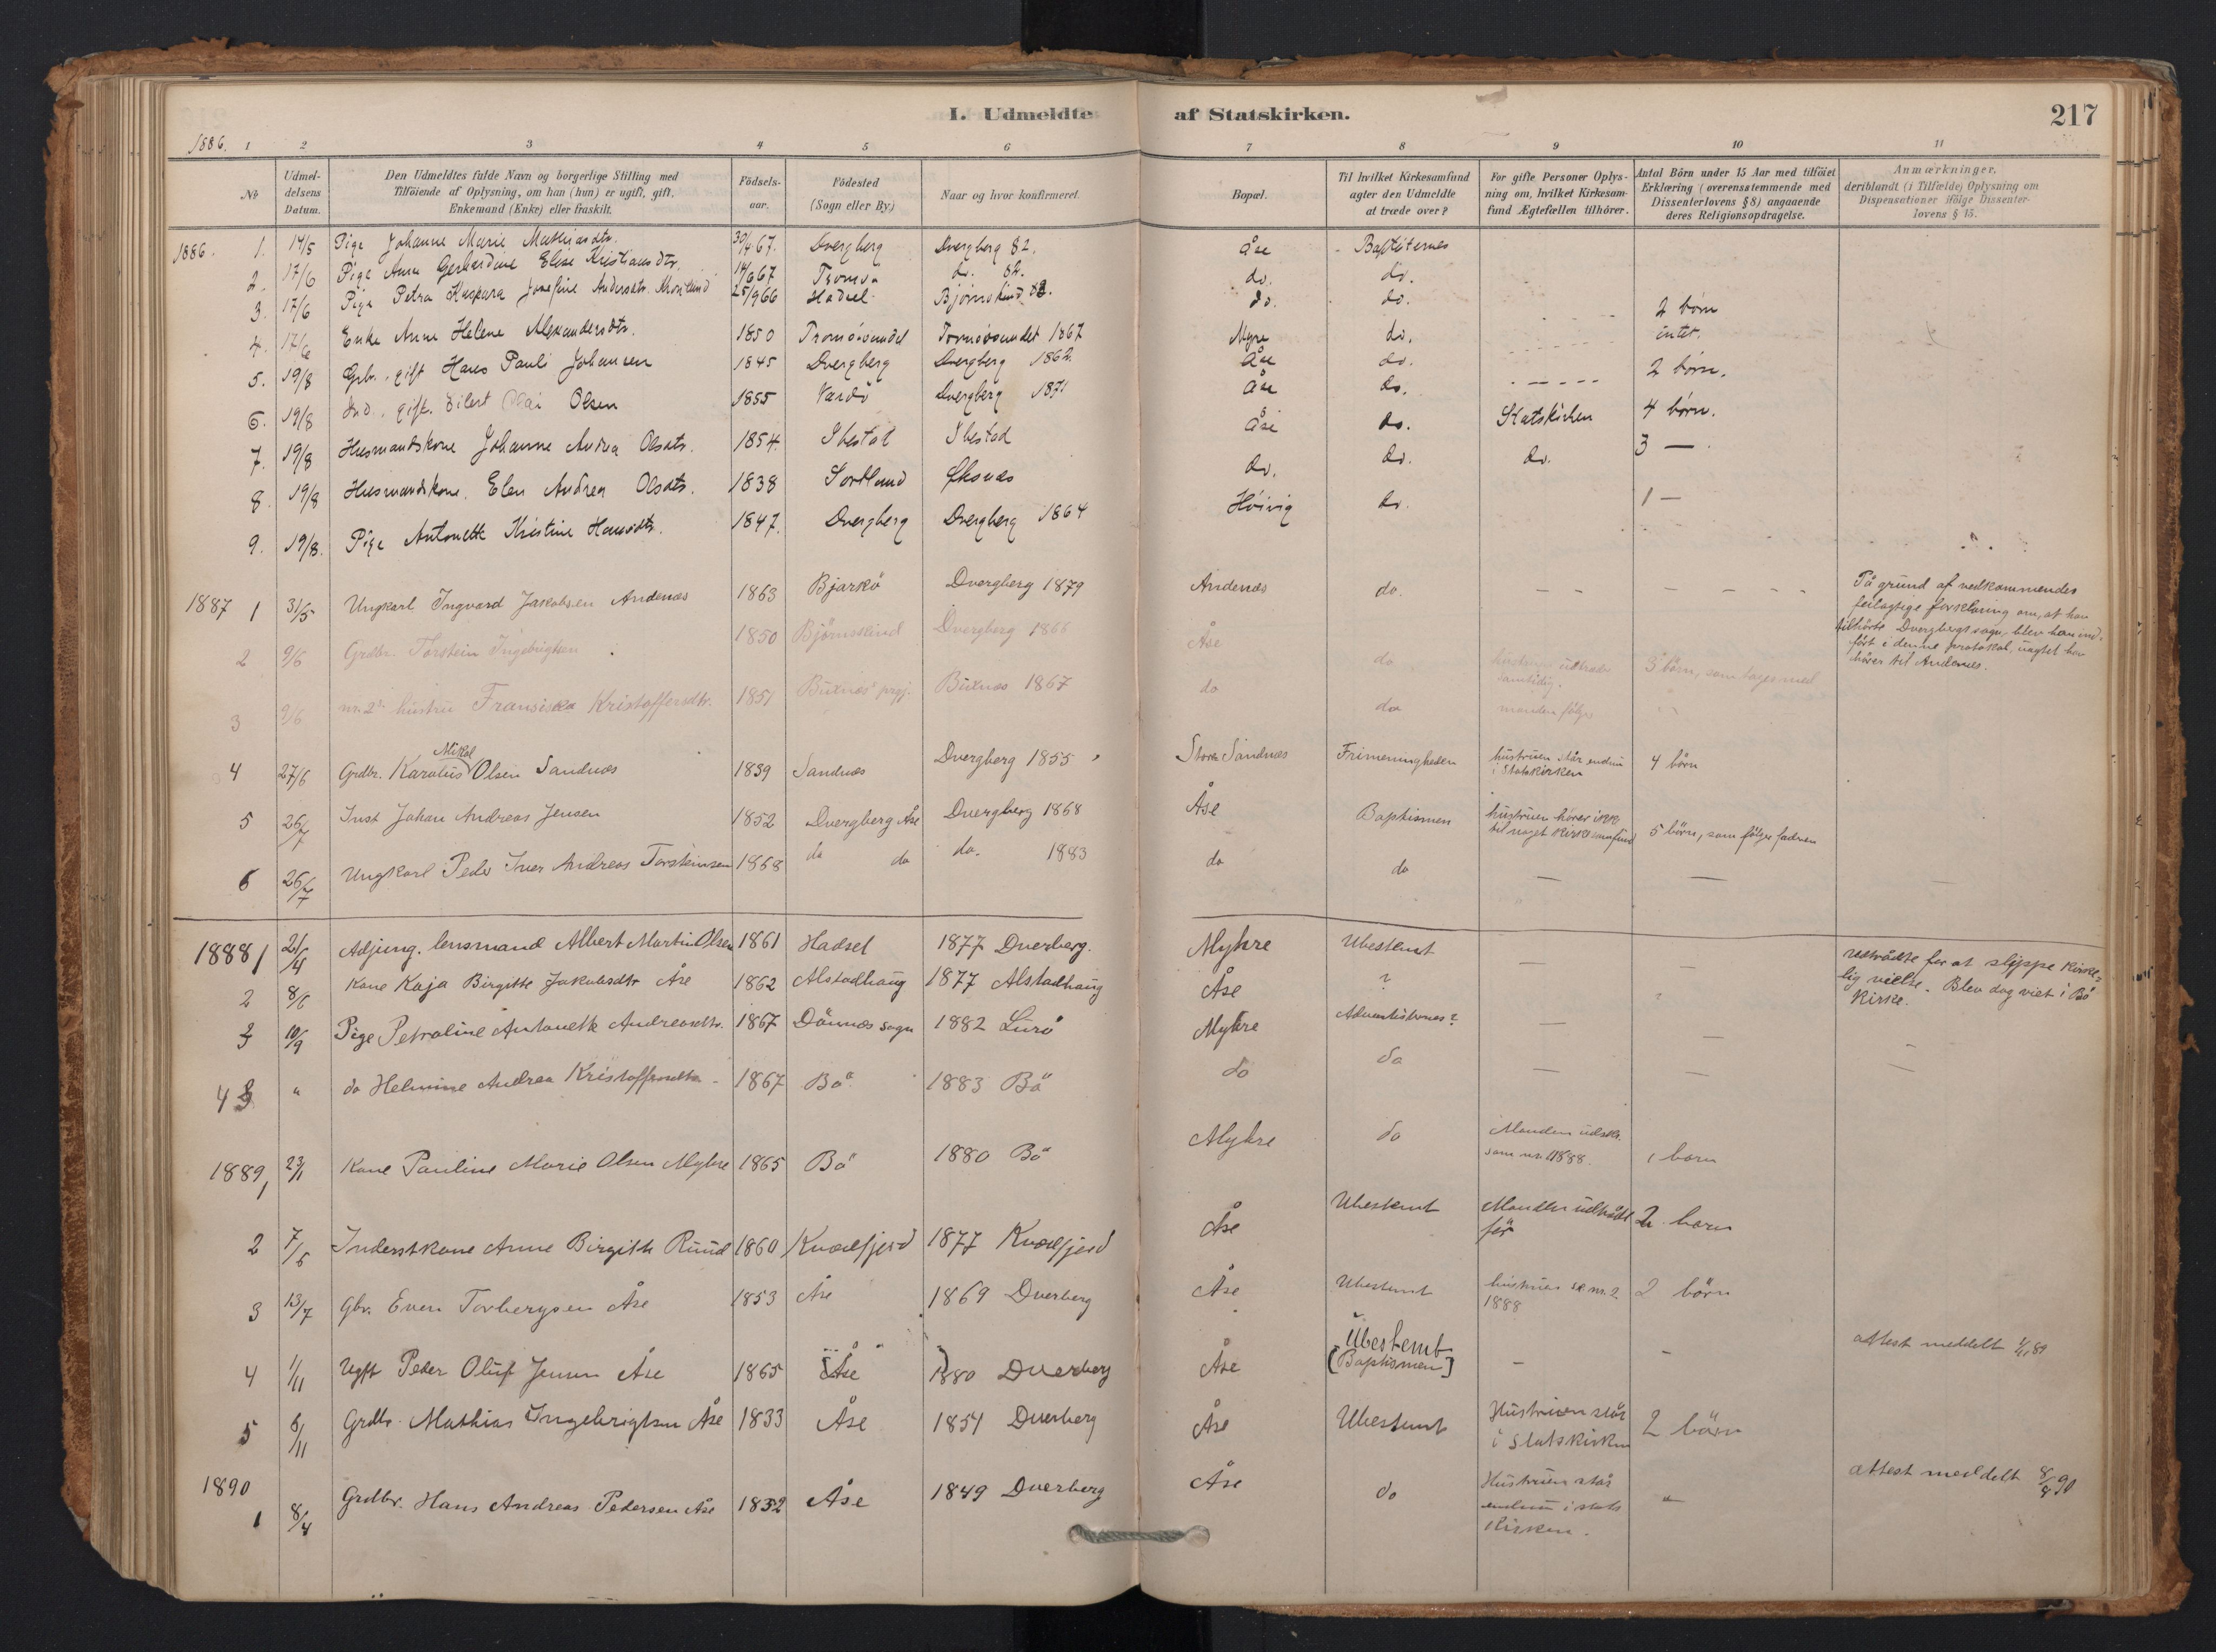 I. Udmeldte af Statskirken. 217
1886. 1 2 3 4 5 6 7 8 9 10 11
№ Udmel-delsens Datum. Den Udmeldtes fulde Navn og borgerlige Stilling med Tilföiende af Oplysning, om han (hun) er ugift, gift, Enkemand (Enke) eller fraskilt. Födsels-aar. Födested (Sogn eller By) Naar og hvor konfirmeret. Bopæl. Til hvilket Kirkesamfund agter den Udmeldte at træde over? For gifte Personer Oplys-ning om, hvilket Kirkesam-fund Ægtefællen tilhörer. Antal Börn under 15 Aar med tilföiet Erklæring (overensstemmende med Dissenterlovens § 8) angaaende deres Religionsopdragelse. Anmærkninger, deriblandt (i Tilfælde) Oplysning om Dispensationer ifölge Dissenter-lovens § 15.
1886. 1. 14/5 Pige Johanne Marie Mathiasdtr. 30/4 67. Dverberg Dverberg 82. Åse Baptisternes
2. 17/6 Pige Anna Gerhardine Elise Kristiansdtr. 14/6 67 Tromsö do. 82. do. do.
3. 17/6 Pige Petra Kaspara Josefine Andersdtr. 25/9 66 Hadsel Bjørnskind do. do.
4. 17/6 Enke Anne Helene Alexandersdtr. 1850 Tromsösundet Tromsösundet 1867 Myre do. 2 børn
5. 19/8 Grbr. gift Hans Pauli Johansen 1845 Dvergberg Dvergberg 1862. Åse do. intet.
6. 19/8 Ind. gift. Eilert Olai Olsen 1855 Vardö Dvergberg 1871 Åse do. 2 børn.
7. 19/8 Husmandskone Johanne Andrea Olsdtr. 1854. Ibestad Ibestad Åse do. Statskirken 4 børn.
8. 19/8 Husmandskone. Elen Andrea Olsdtr. 1838 Sortland Øksnes do. do. do. 3 —
9. 19/8. Pige Antonette Kristine Hansdtr. 1847. Dvergberg Dvergberg 1864 Høivig do. 1 —
1887 1 31/5 Ungkarl Ingvard Jakobsen Andenes 1863 Bjarkö Dvergberg 1879 Andenes do. — — På grund af vedkommendes
feilagtige forklaring om, at han
tilhörte Dvergbergs sogn, blev han ind-
fört i denne protokol, uagtet han
hörer til Andenes.
2 9/6 Grdbr. Torstein Ingebrigtsen 1850 Björnskind Dvergberg 1866 Åse do hustru udtræder samtidig. 3 börn, som tages med
3 9/6 nr. 2's hustru Fransiska Kristoffersdtr. 1851 Buxnæs prgj. Buxnæs 1867 do do manden følge
4 27/6 Grdbr. Karolius Mikal Olsen Sandnes 1839 Sandnes Dvergberg 1855 Store Sandnes Frimenigheden hustruen står endnu i Statskirken 4 börn
5 26/7 Inst Johan Andreas Jensen 1852 Dvergberg Åse Dvergberg 1868 Åse Baptismen hustruen hörer ikke til noget kirkesamfund 5 börn, som fölger faderen
6 26/7 Ungkarl Peder Iver Andreas Torsteinsen 1868 do do do. 1883 do do — —
1888 1 21/4 Adjung. lensmand Albert Martin Olsen 1861 Hadsel 1877 Dverberg. Myhre Ubestemt — — udtrådte for at slippe kirke-
lig vielse. Blev dog viet i Bö
Kirke.
2 8/6 Kone Kaja Birgitte Jakobsdtr Åse 1862 Alstadhaug 1877 Alstadhaug Åse ?
3 10/9 Pige Petroline Antonette Andreasdtr. 1867 Dönnes sogn 1882 Lurö Myhre Adventisternes? — — —
4 " do Helmine Andrea Kristoffersdtr 1867 Bö 1883 Bö do do — — —
1889 1 23/1 Kone Pauline Marie Olsen Myhre 1865 Bö 1880 Bö Myhre do Manden udtr. som nr. 1 1888. 1 barn
2 7/6 Inderstkone Anne Birgitte Ruud 1860 Kvædfjord 1877 Kvædfjord Åse Ubestemt Manden udtrådt før 2 barn
3 13/7 Gbr. Even Torbergsen Åse 1853 Åse 1869 Dverberg Åse Ubestemt hustruen se nr. 2 1888 2 börn
4 1/11 Ugft Peder Oluf Jensen Åse 1865 Åse 1880 Dverberg Åse Ubestemt [Baptismen] — — attest meddelt 1/11 89
5 6/11 Grdbr. Mathias Ingebrigtsen Åse 1833 Åse 1851 Dverberg Åse Ubestemt Hustruen står i Statskirken 2 börn
1890 1 8/4 Grdbr. Hans Andreas Pedersen Åse 1832 Åse 1849 Dverberg Åse do Hustruen står endnu i stats kirken. " attest meddelt 8/8 90